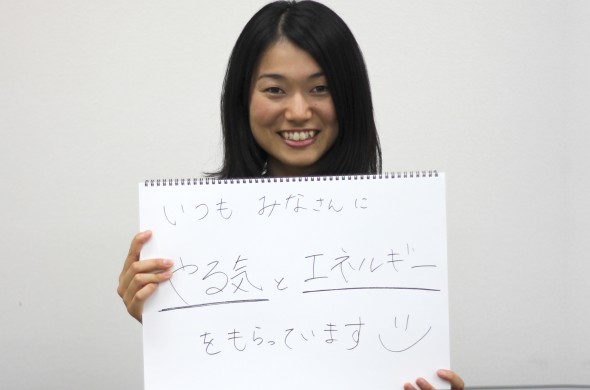 いつも みなさんに
やる気とエネルギー
をもらっています